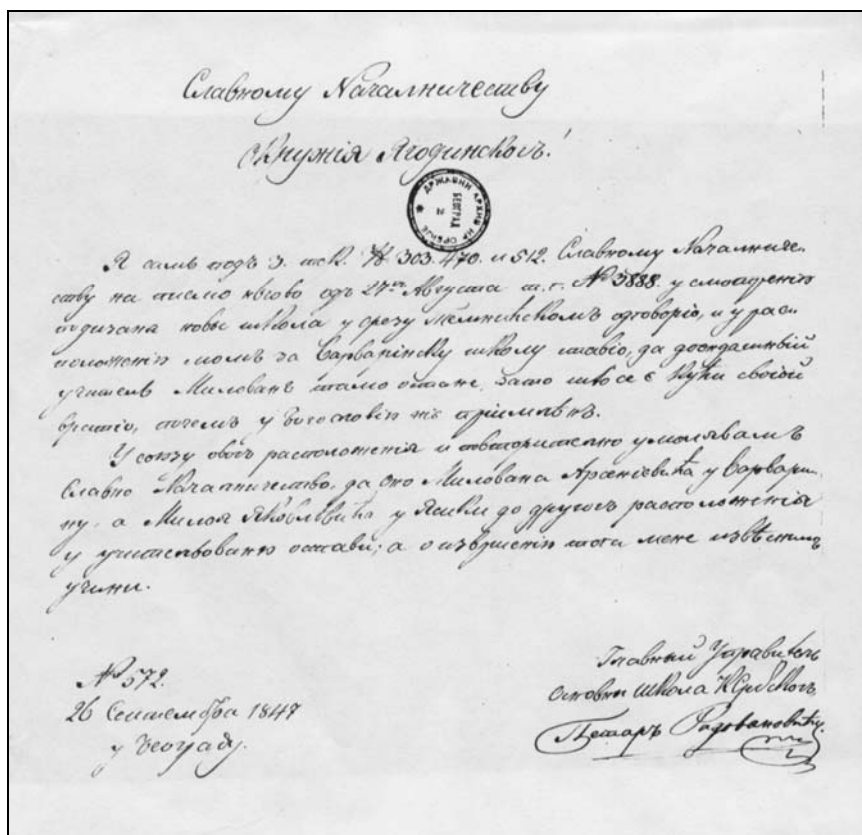 Славному Началничеству
Окружія Ягодинскогъ!
ДРЖАВНИ АРХИВ НР СРБИЈЕ
БЕОГРАД
Я самь подъ 3. тек. № 303. 470. и 512. Славному Началниче-
ству на писмо нѣгово одъ 27. Августа т. г. № 3888. у смотренію
подизаня новы школа у срезу Темнићскомъ одговоріо, и у рас-
положенію момъ за Варваринску школу ставіо, да досадашньій
учитель Милованъ тамо остане, зато што се є кући своіой
вратіо, почемъ у Богословію нє примлѣнъ.
У союзу овогъ расположенія и повторително умолявамъ
Славно Началничество, да оно Милована Арсеніевића у Варвари-
ну, а Милоя Яковлѣвића у Ясики до другогъ расположенія
у учительствованю остави; а о извршенію тога мене извѣстнымъ
учини.
№ 572.
26 Септембра 1847
у Београду.
Главный Управитель
Основны школа К. Србскогъ
Петаръ Радовановићъ